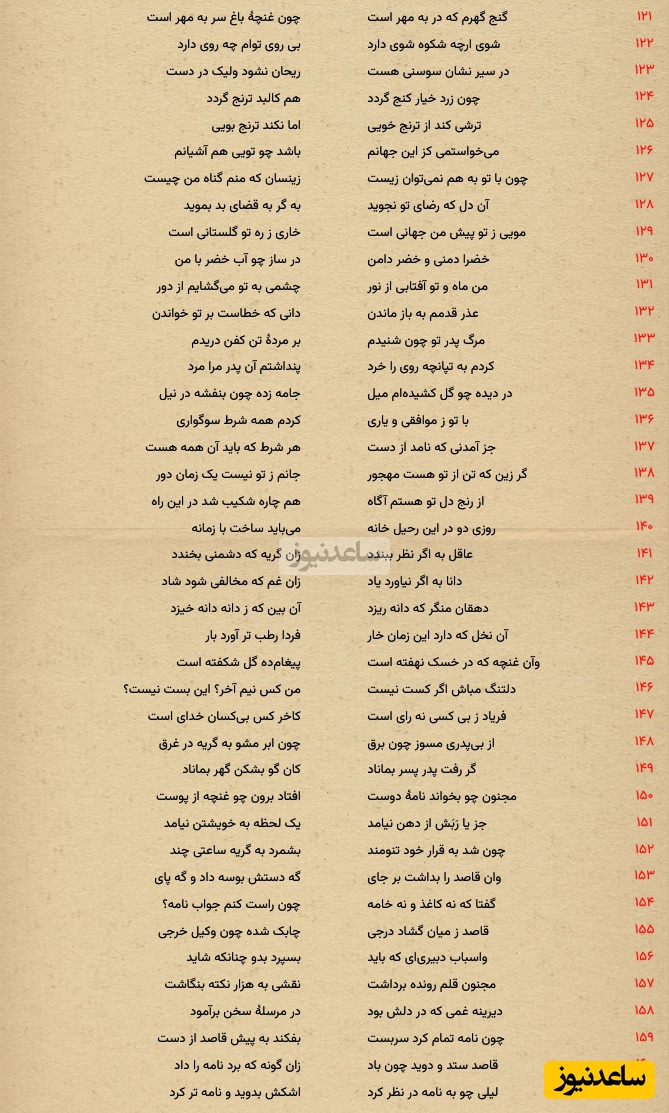 ۱۲۱ گنج گهرم که در به مهر است چون غنچهٔ باغ سر به مهر است
۱۲۲ شوی ارچه شکوه شوی دارد بی روی توام چه روی دارد
۱۲۳ در سیر نشان سوسنی هست ریحان نشود ولیک در دست
۱۲۴ چون زرد خیار کنج گردد هم کالبد ترنج گردد
۱۲۵ ترشی کند از ترنج خویی اما نکند ترنج بویی
۱۲۶ می‌خواستمی کز این جهانم باشد چو تویی هم آشیانم
۱۲۷ چون با تو به هم نمی‌توان زیست زینسان که منم گناه من چیست
۱۲۸ آن دل که رضای تو نجوید به گر به قضای بد بموید
۱۲۹ مویی ز تو پیش من جهانی است خاری ز ره تو گلستانی است
۱۳۰ خضرا دمنی و خضر دامن در ساز چو آب خضر با من
۱۳۱ من ماه و تو آفتابی از نور چشمی به تو می‌گشایم از دور
۱۳۲ عذر قدمم به باز ماندن دانی که خطاست بر تو خواندن
۱۳۳ مرگ پدر تو چون شنیدم بر مردهٔ تن کفن دریدم
۱۳۴ کردم به تپانچه روی را خرد پنداشتم آن پدر مرا مرد
۱۳۵ در دیده چو گل کشیده‌ام میل جامه زده چون بنفشه در نیل
۱۳۶ با تو ز موافقی و یاری کردم همه شرط سوگواری
۱۳۷ جز آمدنی که نامد از دست هر شرط که باید آن همه هست
۱۳۸ گر زین که تن از تو هست مهجور جانم ز تو نیست یک زمان دور
۱۳۹ از رنج دل تو هستم آگاه هم چاره شکیب شد در این راه
۱۴۰ روزی دو در این رحیل خانه می‌باید ساخت با زمانه
۱۴۱ عاقل به اگر نظر ببندد زان گریه که دشمنی بخندد
ساعدنیوز
۱۴۲ دانا به اگر نیاورد یاد زان غم که مخالفی شود شاد
۱۴۳ دهقان منگر که دانه ریزد آن بین که ز دانه دانه خیزد
۱۴۴ آن نخل که دارد این زمان خار فردا رطب تر آورد بار
۱۴۵ وآن غنچه که در خسک نهفته است پیغام‌ده گل شکفته است
۱۴۶ دلتنگ مباش اگر کست نیست من کس نیم آخر؟ این بست نیست؟
۱۴۷ فریاد ز بی کسی نه رای است کاخر کس بی‌کسان خدای است
۱۴۸ از بی‌پدری مسوز چون برق چون ابر مشو به گریه در غرق
۱۴۹ گر رفت پدر پسر بماناد کان گو بشکن گهر بماناد
۱۵۰ مجنون چو بخواند نامهٔ دوست افتاد برون چو غنچه از پوست
۱۵۱ جز یا رَبَش از دهن نیامد یک لحظه به خویشتن نیامد
۱۵۲ چون شد به قرار خود تنومند بشمرد به گریه ساعتی چند
۱۵۳ وان قاصد را بداشت بر جای گه دستش بوسه داد و گه پای
۱۵۴ گفتا که نه کاغذ و نه خامه چون راست کنم جواب نامه؟
۱۵۵ قاصد ز میان گشاد درجی چابک شده چون وکیل خرجی
۱۵۶ واسباب دبیری‌ای که باید بسپرد بدو چنانکه شاید
۱۵۷ مجنون قلم رونده برداشت نقشی به هزار نکته بنگاشت
۱۵۸ دیرینه غمی که در دلش بود در مرسلهٔ سخن برآمود
۱۵۹ چون نامه تمام کرد سربست بفکند به پیش قاصد از دست
قاصد ستد و دوید چون باد زان گونه که برد نامه را داد
لیلی چو به نامه در نظر کرد اشکش بدوید و نامه تر کرد
ساعدنیوز